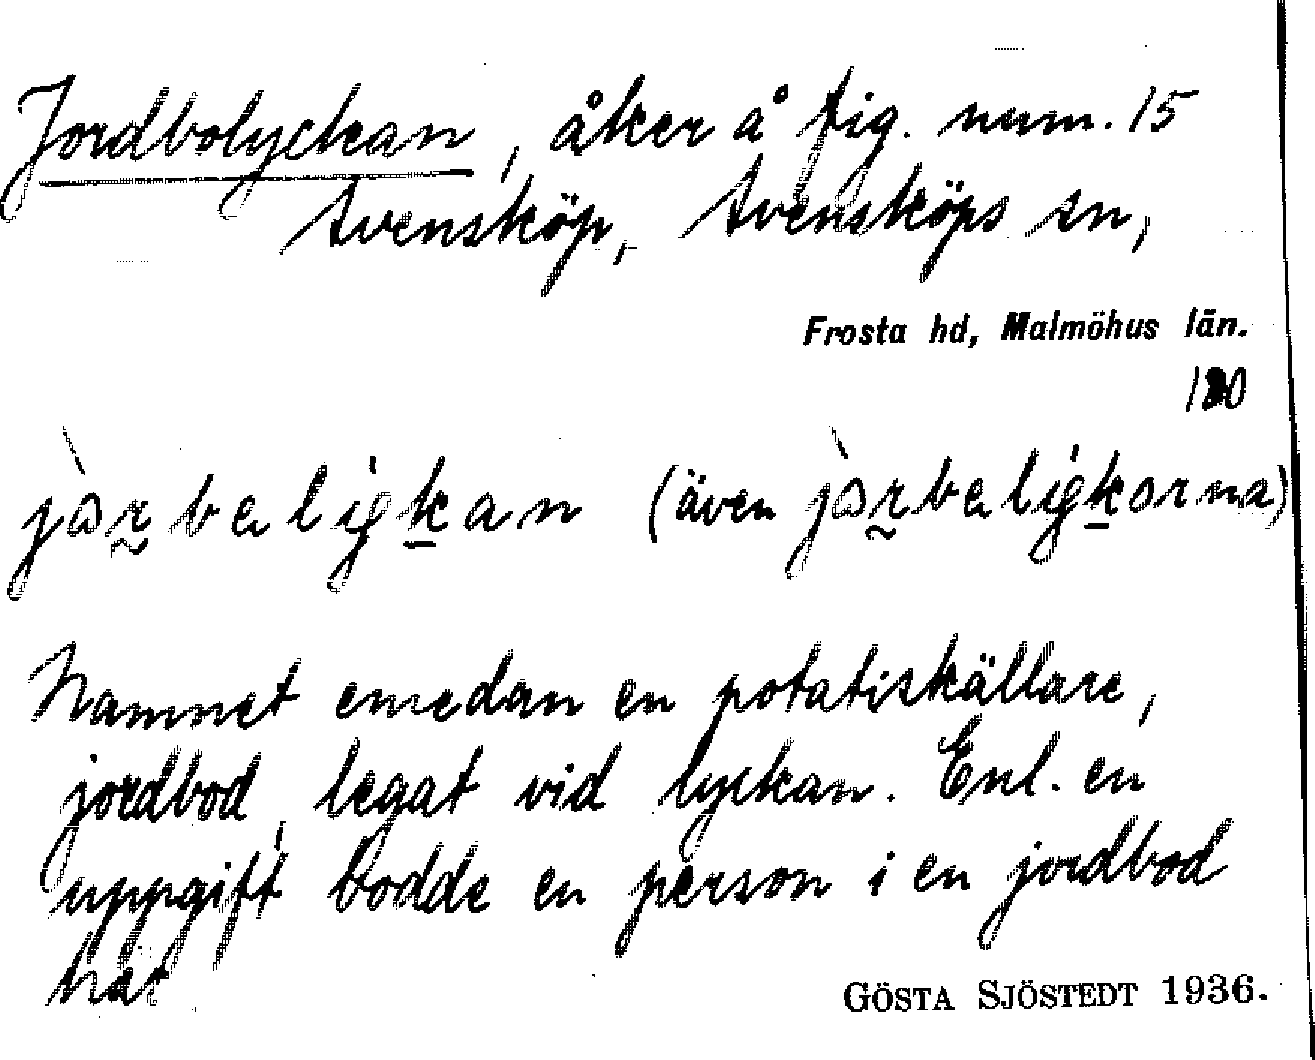 Jordbolyckan, åker å fig. num. 15
Svensköp, Svensköps sn,
Frosta hd, Malmöhus län.
jàrbeligkan (även jàrbeligkorna)
Namnet emedan en potatiskällare,
jordbod, legat vid lyckan. Enl. en
uppgift bodde en person i en jordbod
här
GÖSTA SJÖSTEDT 1936.